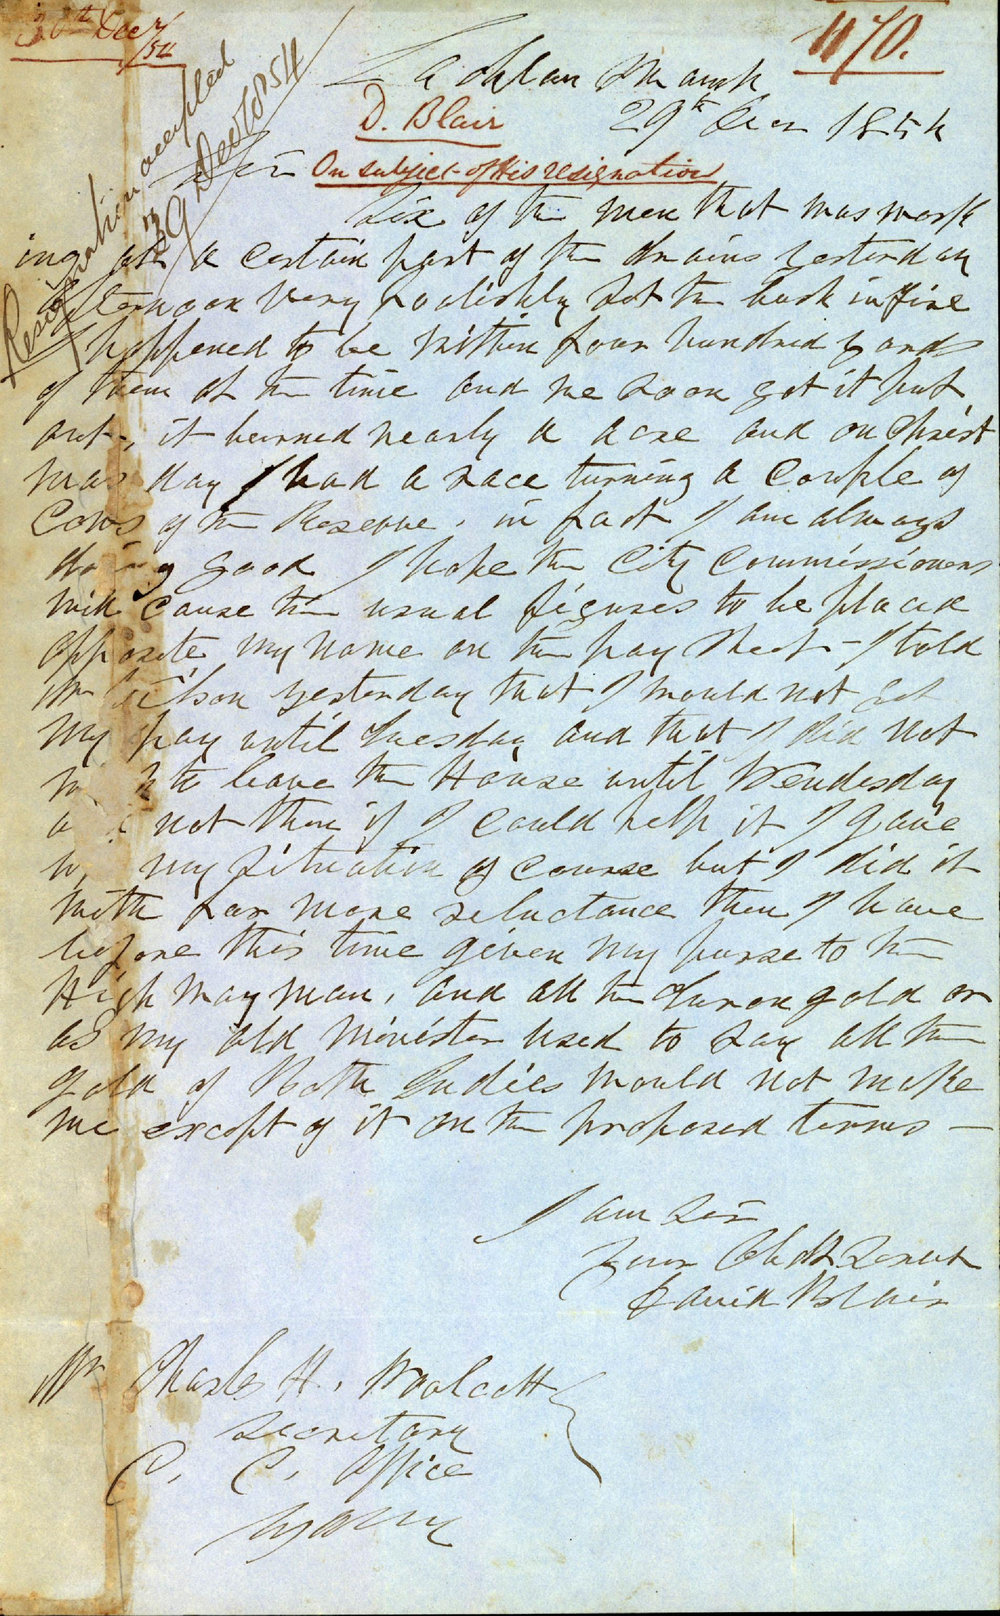 30th Decr/54
1170.
Resignation accepted
29 Dec 1854
Lachlan Swamp
D. Blair
29th Decr 1854
Sir
On subject of His resignation
Six of the men that was work
ing at a certain part of the drains yesterday
afternoon very foolishly set the bush in fire
I happened to be within four hundred yards
of them at the time and we soon got it put
out, it burned nearly a acre and on Christ
mas day I had a race turning a couple of
Cows of the Reserve. in fact I am always
doing good I hope the City Commissioners
will cause the usual figures to be placed
opposite my name on the pay sheet - I told
Mr Wilson yesterday that I would not get
my pay until Tuesday and that I did not
to leave the House until Wendesday
not then if I could help it I gave
my situation of course but I did it
with far more reluctance then I have
before this time given my purse to the
High way man, and all the Turon gold or
as my old Minister used to say all the
gold of Both Indies would not make
me except of it on the proposed terms -
I am Sir
Your Obdt. Servt
David Blair
Mr Charles H. Woolcott
Secretary
C. C. Office
Sydney